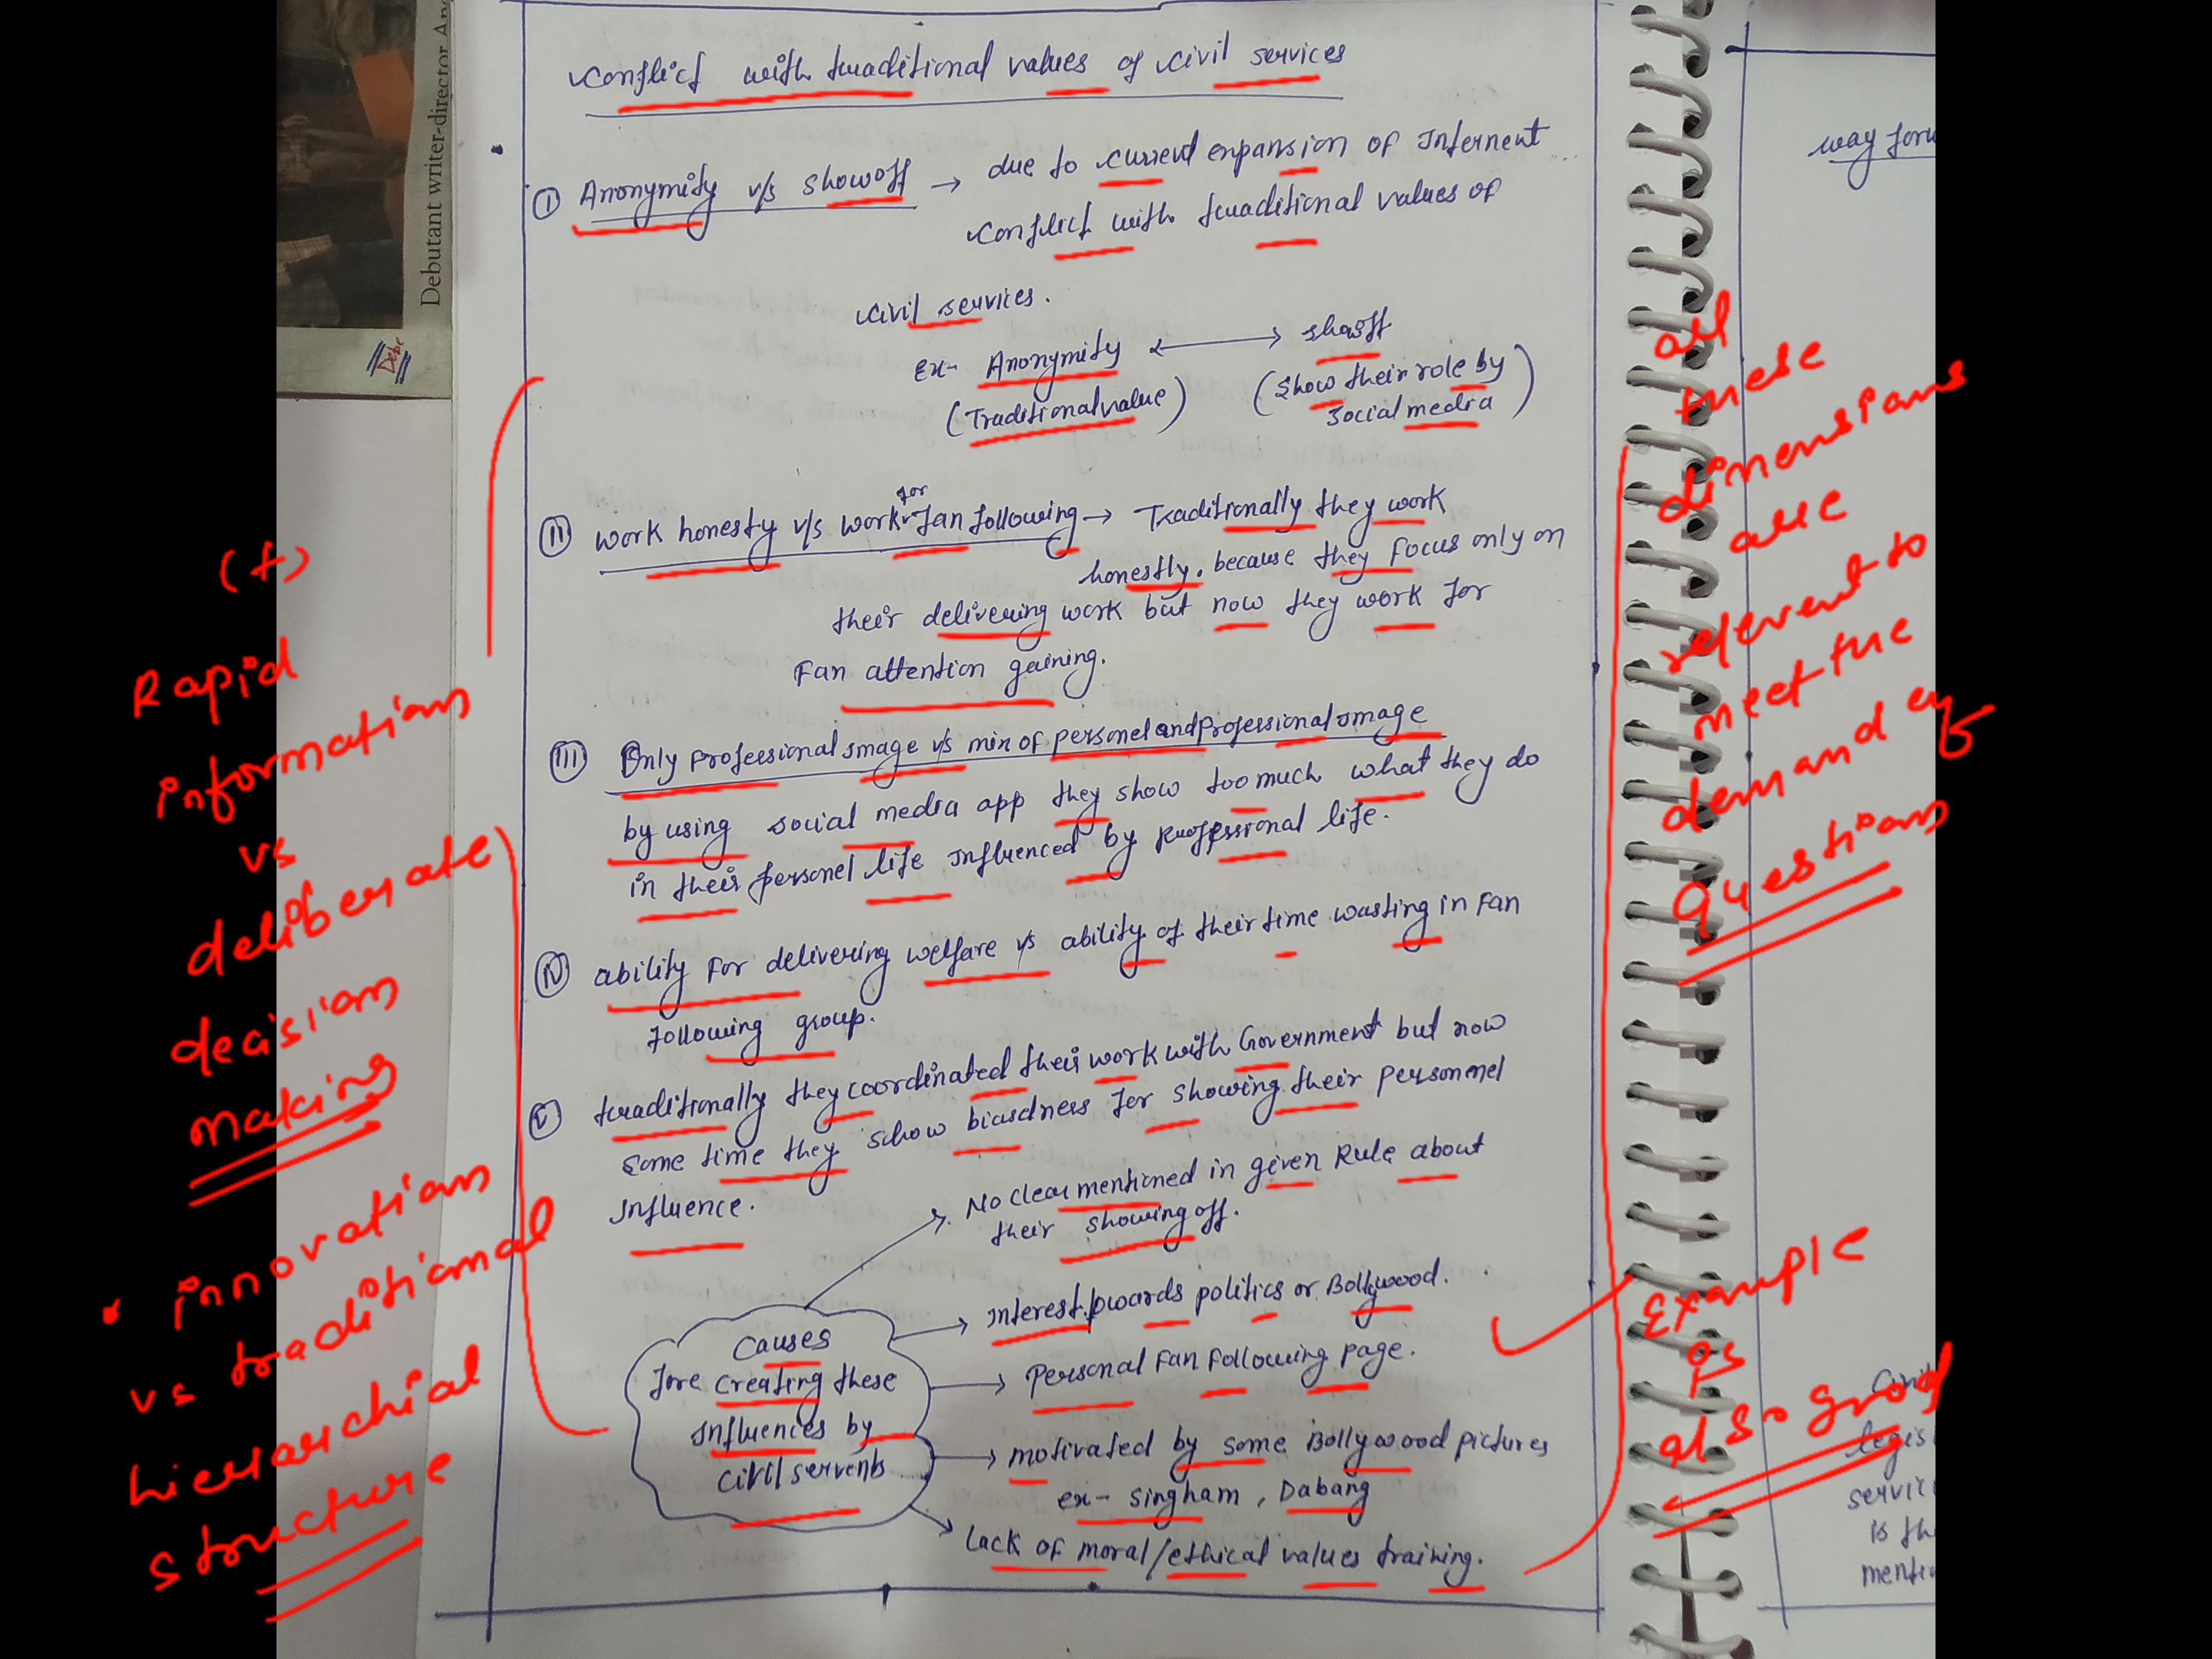 Debutant writer-director An
Debc
Conflict with traditional values of civil services
I Anonymity v/s showoff → due to current expansion of Internent
conflict with traditional values of
civil services.
Ex- Anonymity ↔ shooff
(Traditional value) (Show their role by
social media)
II work honesty v/s work for fan following → Traditionally they work
honestly. because they focus only on
their delivering work but now they work for
Fan attention gaining.
III Only professional image v/s mix of personel and professional image
by using social media app they show too much what they do
in their personel life influenced by professional life.
IV ability for delivering welfare v/s ability of their time wasting in Fan
following group.
V traditionally they coordinated their work with Government but now
some time they show biasdness for showing their personnel
influence.
No clear mentioned in given Rule about
their showing off.
Causes
fore creating these
influences by
civil servents
Interest towards politics or Bollywood.
Personal Fan following page.
motivated by some Bollywood pictures
ex- singham, Dabang
Lack of moral/ethical values training.
(+)
Rapid
information
vs
deliberate
decision
making
• innovation
vs traditional
hierarchial
structure
all
these
dimensions
are
relevent to
meet the
demand of
Question
Example
is
also good
way forw
legis
servic
is th
mentio